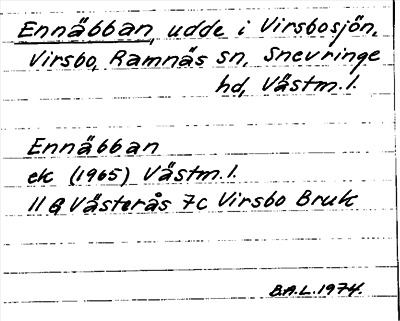 Ennäbban, udde i Virsbosjön,
Virsbo, Ramnäs sn, Snevringe
hd, Västm.l.
Ennäbban
ek (1965) Västm.l.
11G Västerås 7c Virsbo Bruk
B.A.L. 1974.